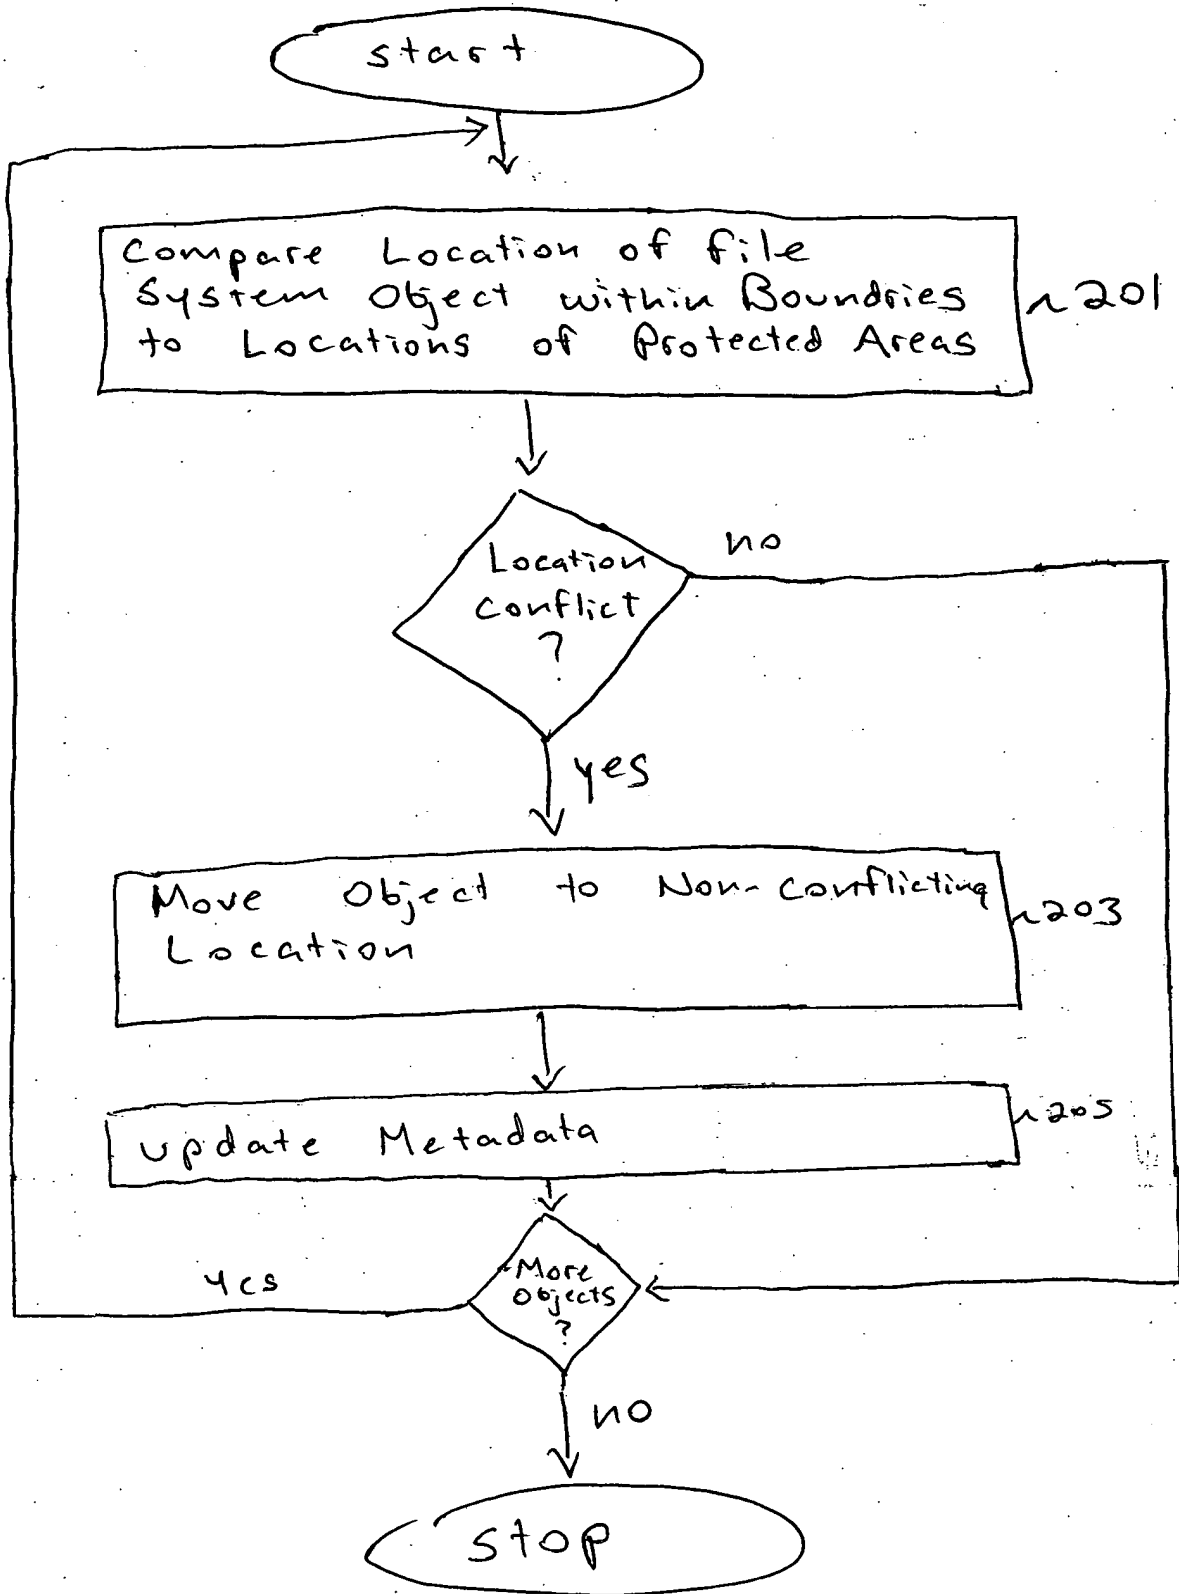 start
Compare Location of file
System Object within Boundries
to Locations of Protected Areas
201
Location
Conflict
?
no
yes
Move Object to Non-conflicting
Location
203
update Metadata
205
More
Objects
?
yes
no
stop